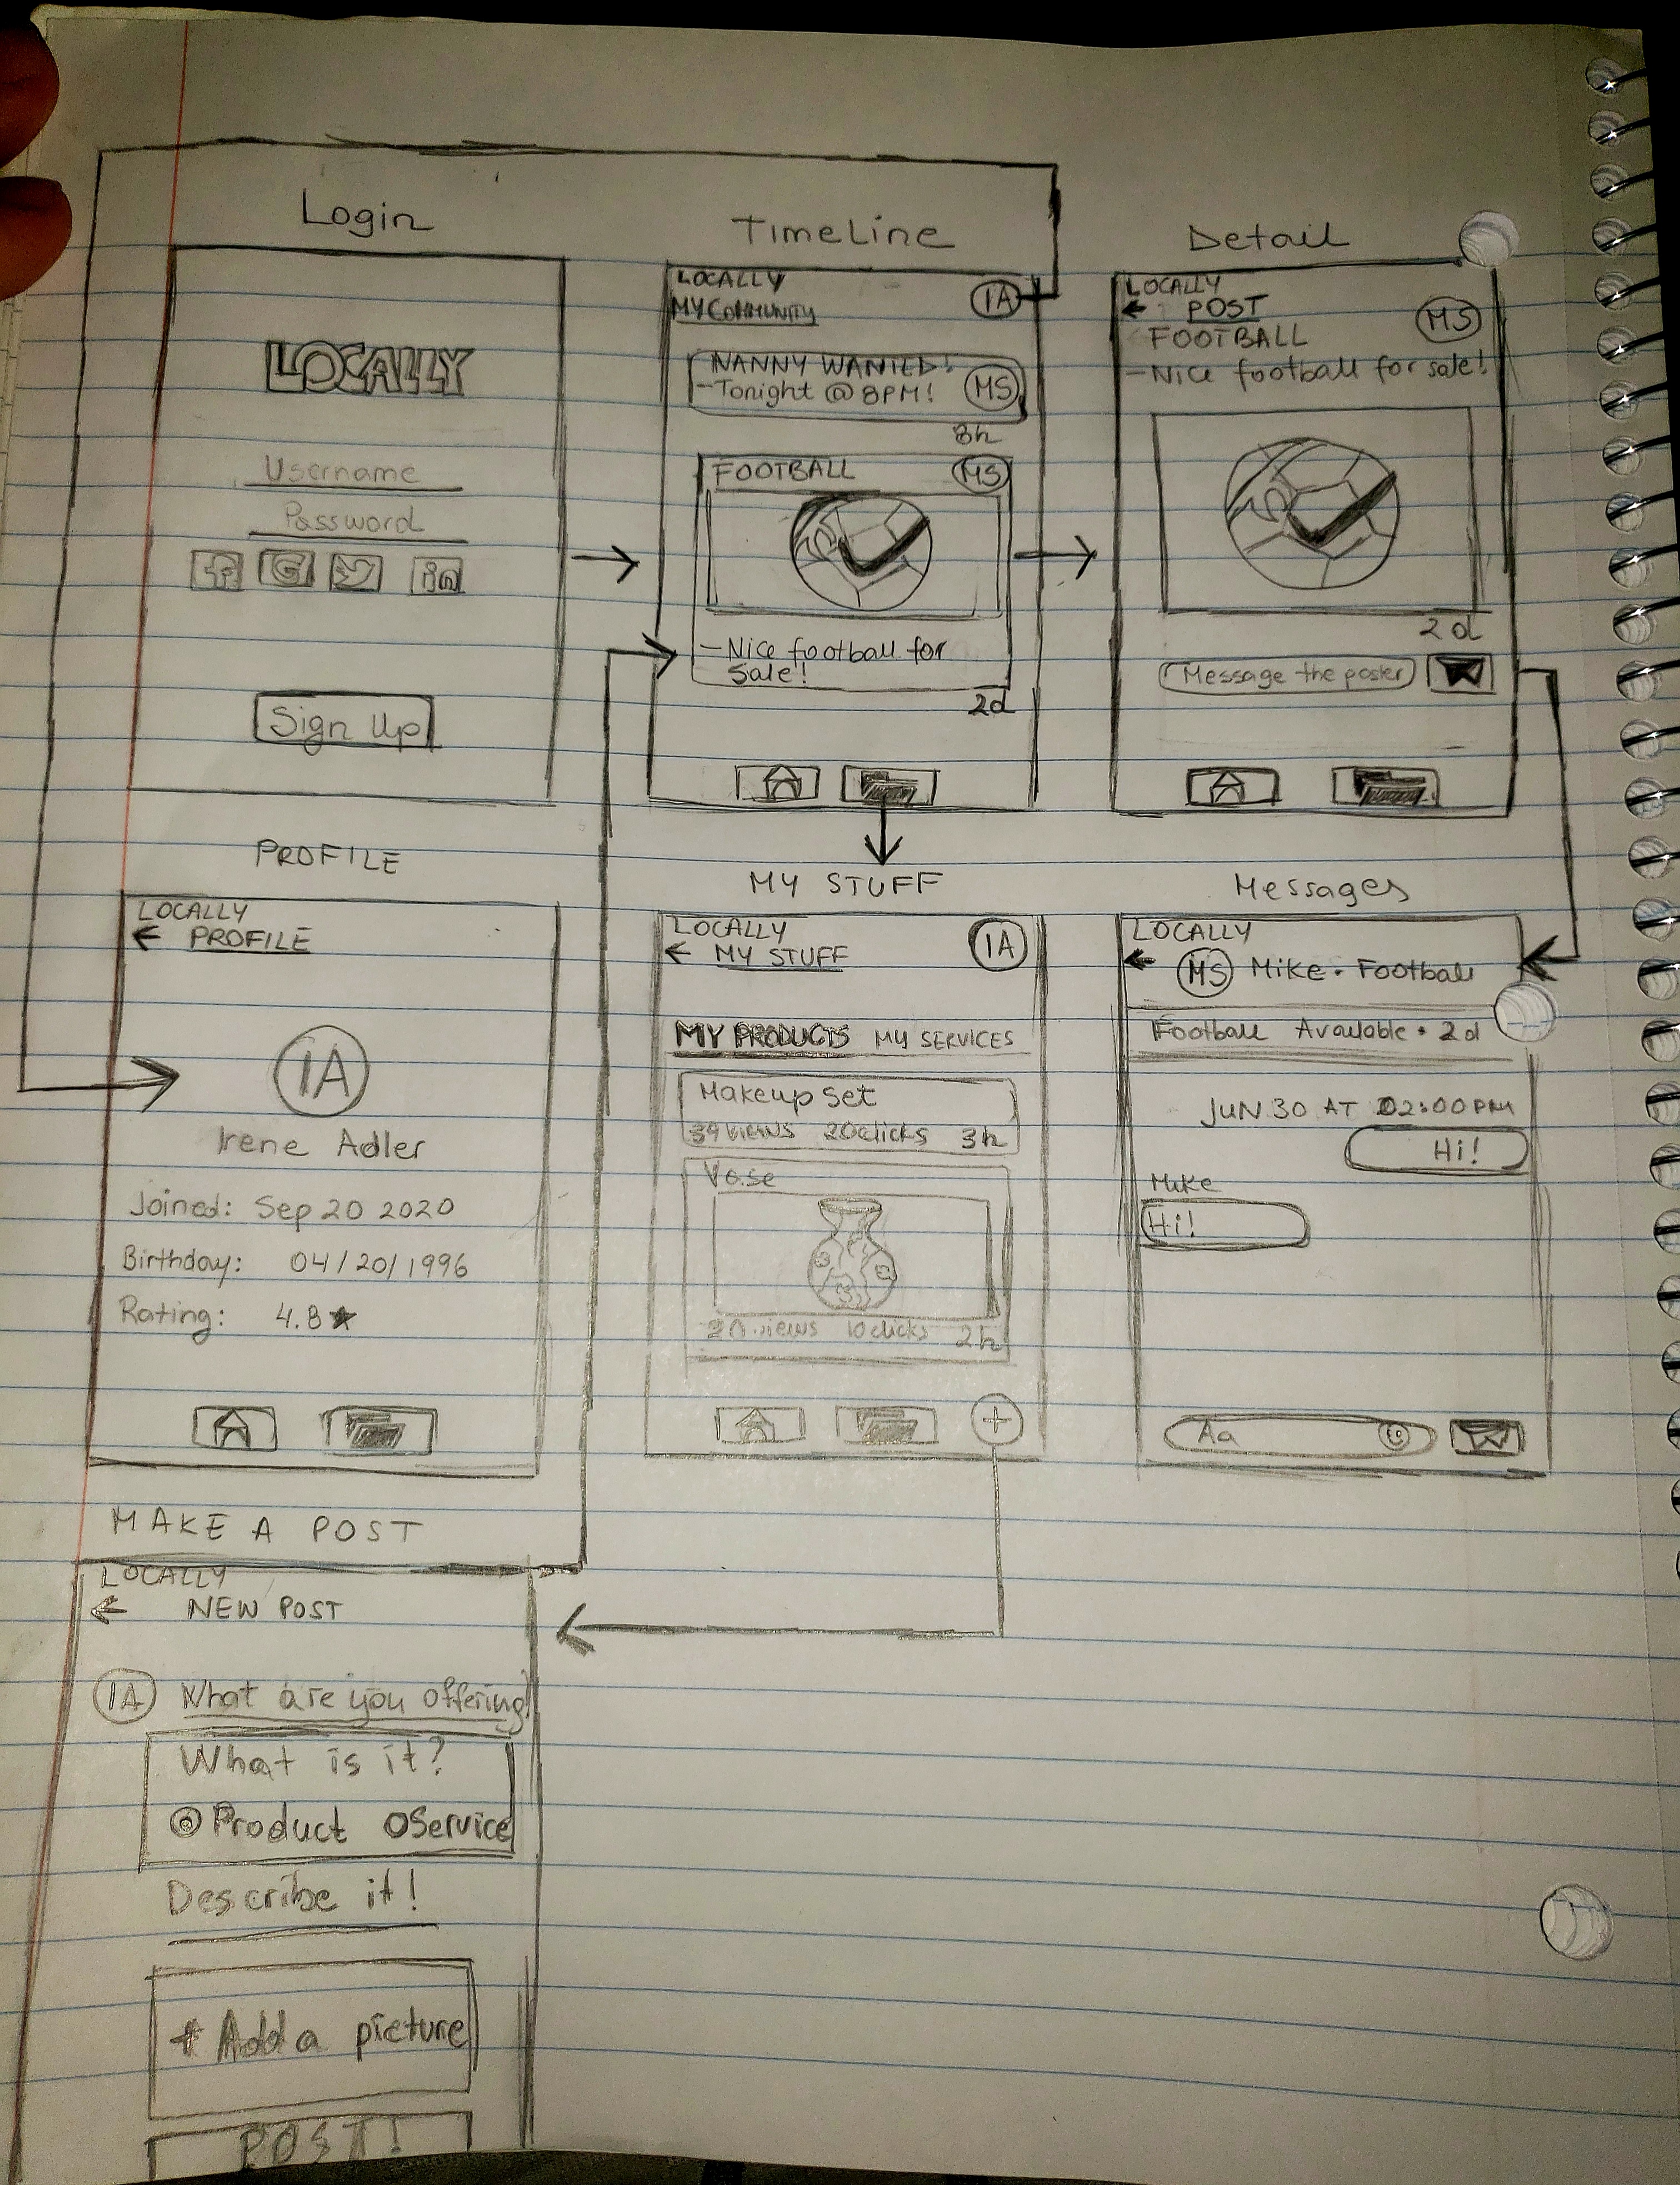 Login
LOCALLY
Username
Password
f G in
Sign Up
TimeLine
LOCALLY
MY COMMUNITY
IA
NANNY WANTED!
-Tonight @ 8PM!
MS
8h
FOOTBALL
MS
-Nice football for
Sale!
2d
Detail
LOCALLY
← POST
MS
FOOTBALL
-Nice football for sale!
2d
Message the poster
PROFILE
LOCALLY
← PROFILE
IA
Irene Adler
Joined: Sep 20 2020
Birthday: 04/20/1996
Rating: 4.8★
MY STUFF
LOCALLY
← MY STUFF
IA
MY PRODUCTS MY SERVICES
Makeup set
39 views 20 clicks 3h
Vase
20 views 10 clicks 2h
+
Messages
LOCALLY
← MS Mike • Football
Football Available • 2d
JUN 30 AT 02:00PM
Hi!
Mike
Hi!
Aa
MAKE A POST
LOCALLY
← NEW POST
IA What are you offering?
What is it?
Product Service
Describe it!
+ Add a picture
POST!